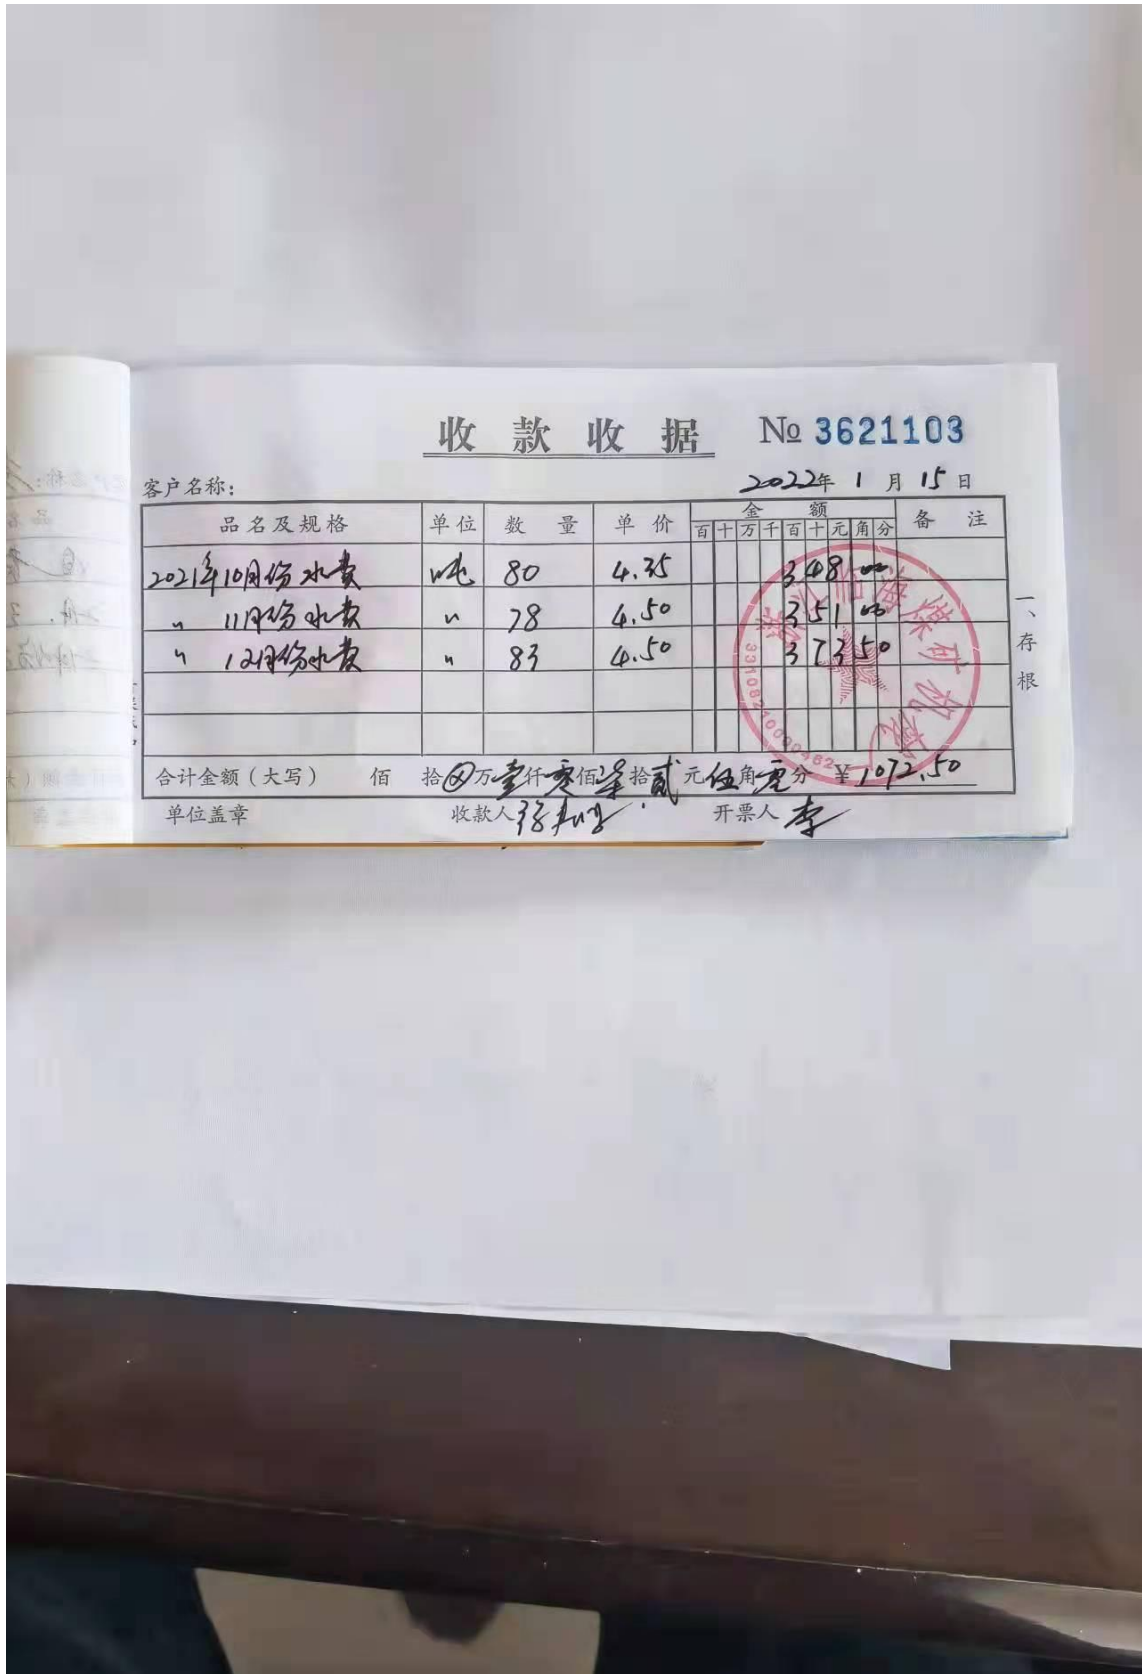 收款收据 № 3621103
客户名称: 2022年 1 月 15 日
品名及规格 单位 数量 单价 金额 备注
百 十 万 千 百 十 元 角 分
2021年10月份水费 吨 80 4.35 348 00
〃 11月份水费 〃 78 4.50 351 00
〃 12月份水费 〃 83 4.50 373 50
合计金额(大写) 佰 拾 万壹仟零佰柒拾贰元伍角零分 ¥1072.50
单位盖章 收款人 开票人 李
一、存根
临海煤矿机械